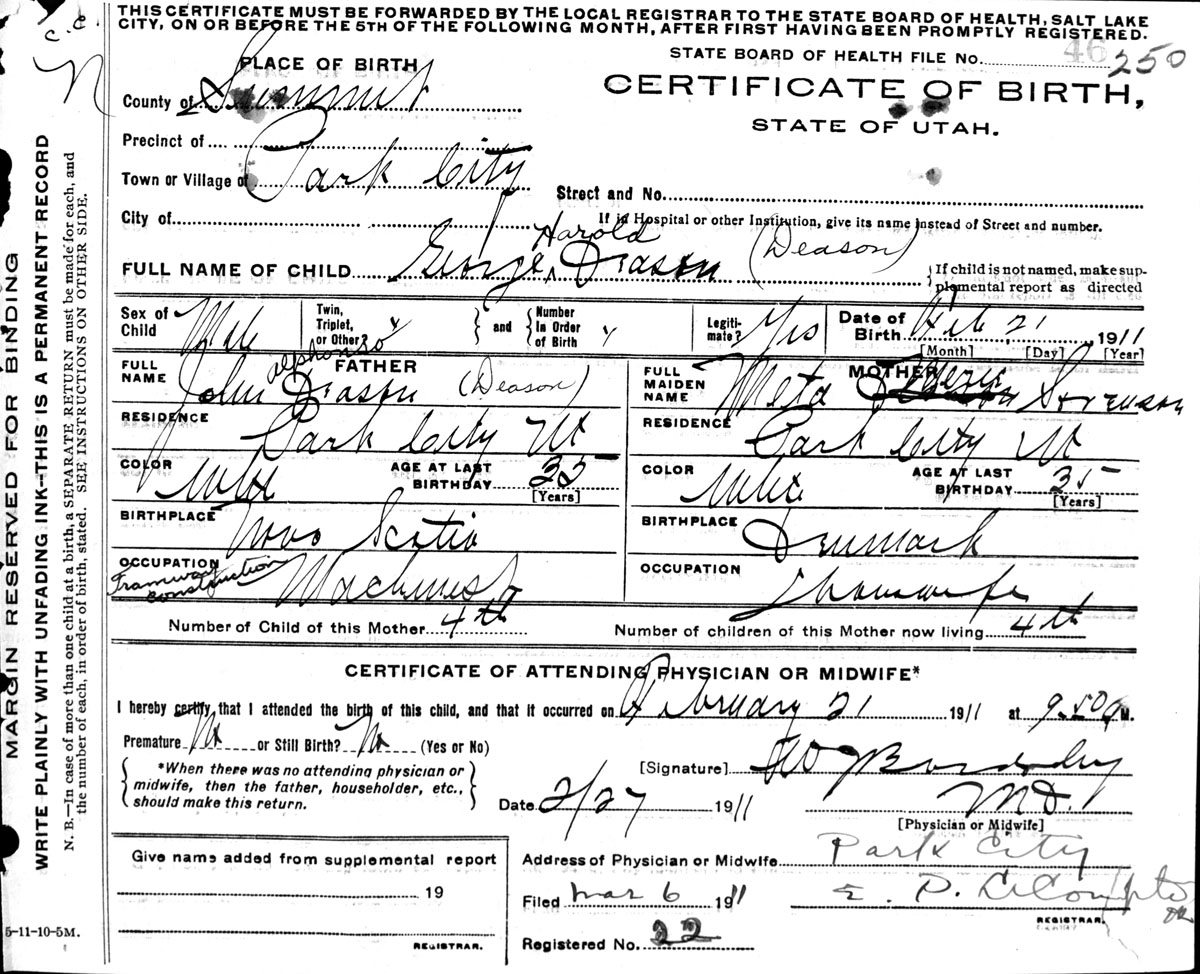 THIS CERTIFICATE MUST BE FORWARDED BY THE LOCAL REGISTRAR TO THE STATE BOARD OF HEALTH, SALT LAKE
CITY, ON OR BEFORE THE 5TH OF THE FOLLOWING MONTH, AFTER FIRST HAVING BEEN PROMPTLY REGISTERED.
c.c.
N
STATE BOARD OF HEALTH FILE No. 46 250
PLACE OF BIRTH
CERTIFICATE OF BIRTH,
STATE OF UTAH.
County of Summit
Precinct of
Town or Village of Park City
Street and No.
City of
If in Hospital or other Institution, give its name instead of Street and number.
Harold
FULL NAME OF CHILD George Deason (Deason)
If child is not named, make supplemental report as directed
Sex of Child Male
Twin, Triplet, or Other?
and
Number In Order of Birth
Legitimate? Yes
Date of Birth Feb 21 1911
[Month] [Day] [Year]
FATHER
alphonso
FULL NAME John Deason (Deason)
RESIDENCE Park City Ut
COLOR White
AGE AT LAST BIRTHDAY 35
[Years]
BIRTHPLACE Nova Scotia
OCCUPATION Machinist
Tramway construction
MOTHER
FULL MAIDEN NAME Meta Sorenson
RESIDENCE Park City Ut
COLOR White
AGE AT LAST BIRTHDAY 35
[Years]
BIRTHPLACE Denmark
OCCUPATION Housewife
Number of Child of this Mother 4th
Number of children of this Mother now living 4th
CERTIFICATE OF ATTENDING PHYSICIAN OR MIDWIFE*
I hereby certify that I attended the birth of this child, and that it occurred on February 21 1911 at 9.50 M.
Premature No or Still Birth? No (Yes or No)
*When there was no attending physician or
midwife, then the father, householder, etc.,
should make this return.
[Signature]
M.D.
[Physician or Midwife]
Date 2/27 1911
Give name added from supplemental report
19
REGISTRAR.
Address of Physician or Midwife Park City
Filed Mar 6 1911 E. P. LeCompte
REGISTRAR.
Registered No. 22
MARGIN RESERVED FOR BINDING
WRITE PLAINLY WITH UNFADING INK—THIS IS A PERMANENT RECORD
N. B.—In case of more than one child at a birth, a SEPARATE RETURN must be made for each, and
the number of each, in order of birth, stated. SEE INSTRUCTIONS ON OTHER SIDE.
5-11-10-5M.